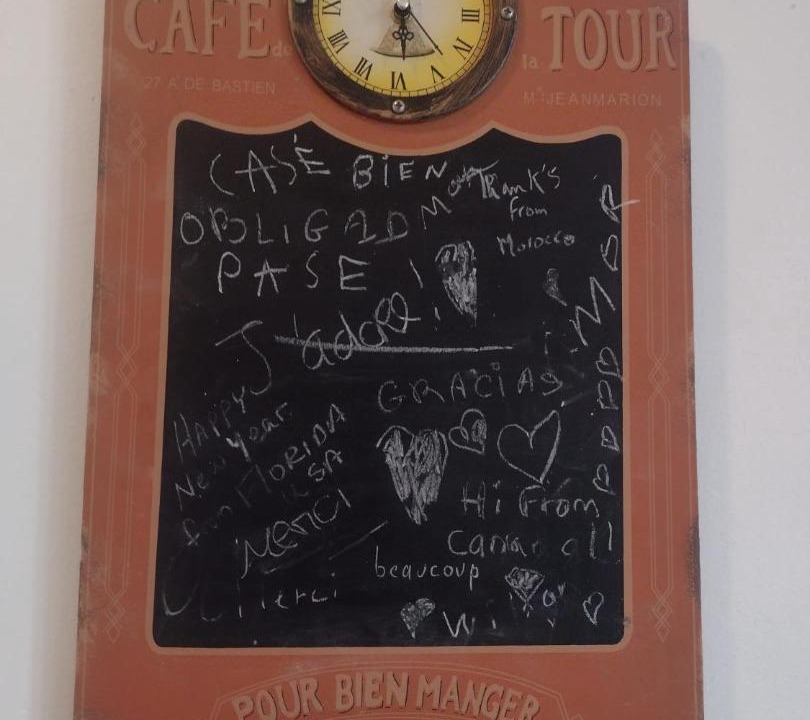 CAFE de la TOUR
27 A DE BASTIEN
M JEANMARION
VIII VII VI V IIII III
CASÉ BIEN
Thank's
from
Morocco
OBLIGADO
PASE !
J'adore
GRACIAS
HAPPY
New Year
from FLORIDA
USA
Merci
Hi From
beaucoup
Merci
POUR BIEN MANGER